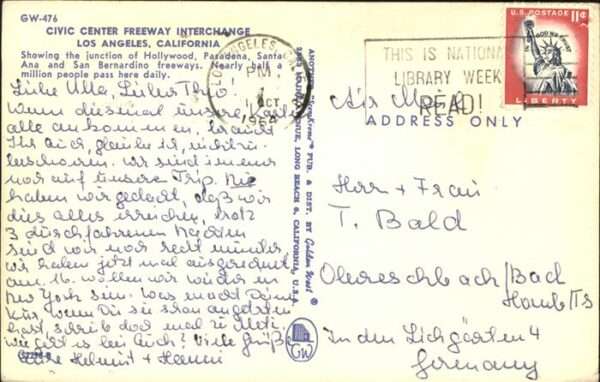 GW-476
CIVIC CENTER FREEWAY INTERCHANGE
LOS ANGELES, CALIFORNIA
Showing the junction of Hollywood, Pasadena, Santa
Ana and San Bernardino freeways. Nearly half a
million people pass here daily.
Liebe Ulla, Lieber Theo.
Wenn diesmal unsere
alle ankommen, braucht
Ihr Euch, glaube ich, nicht
beschweren. Wir sind immer
noch auf unsere Trip. Nie
haben wir gedacht, daß wir
dies alles erreichen, trotz
3 durchfahrenen Nächten
sind wir noch recht munter
wir haben jetzt mal ausgerechnet
am 16. wollen wir wieder in
New York sein. Was macht Deine
Kur, wenn Du sie schon angetreten
hast, schreib doch mal
wie geht es bei Euch? Viele Grüße
Eure Helmut + Hanni
LOS ANGELES, CA
PM
1
OCT
1964
THIS IS NATIONAL
LIBRARY WEEK
READ!
U.S. POSTAGE 11¢
IN GOD WE TRUST
LIBERTY
ANOTHER PUB. & DIST. BY Golden West ®
AVENUE, LONG BEACH 6, CALIFORNIA, U.S.A.
GW
Air Mail
ADDRESS ONLY
Herr + Frau
T. Bald
Obereschbach/Bad
Homb
In den Lichgärten 4
Germany